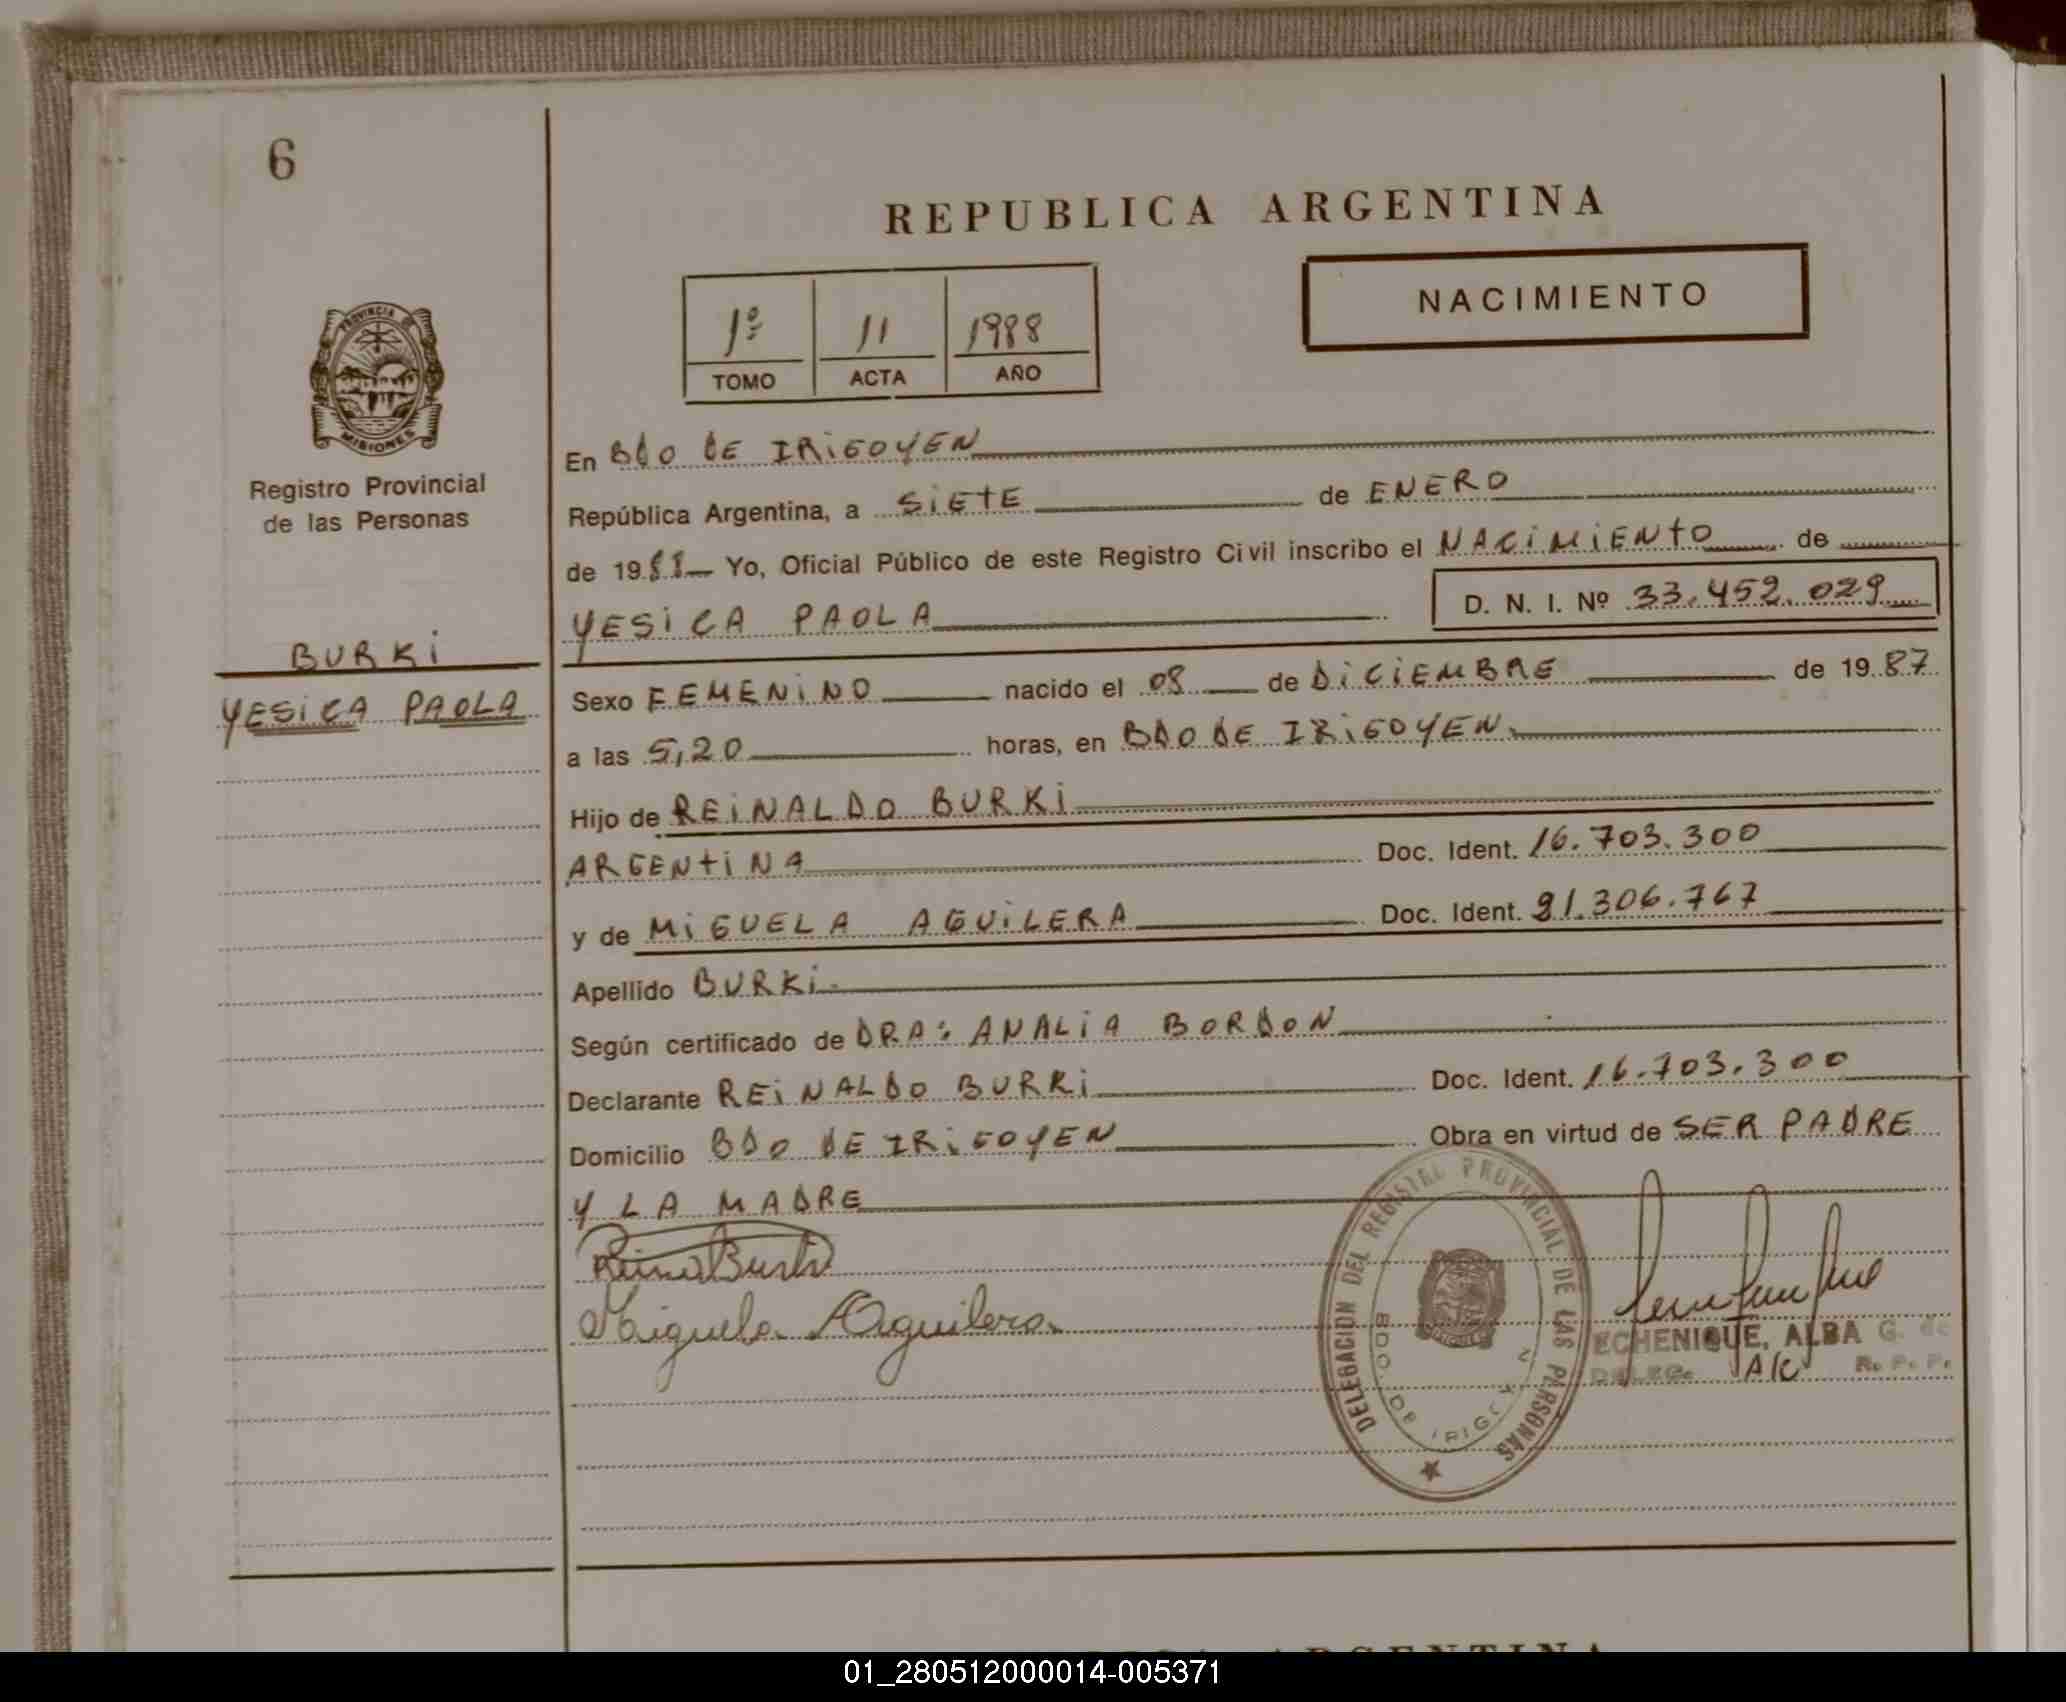 6
REPUBLICA ARGENTINA
NACIMIENTO
1º 11 1988
TOMO ACTA AÑO
PROVINCIA DE
MISIONES
Registro Provincial
de las Personas
BURKi
YESiCA PAOLA
En BDO DE IRiGOYEN
República Argentina, a SiEtE de ENERO
de 1988 Yo, Oficial Público de este Registro Civil inscribo el NACiMiENtO de
YESiCA PAOLA D. N. I. Nº 33.452.029
Sexo FEMENiNO nacido el 08 de DiCiEMBRE de 1987
a las 5,20 horas, en BDO DE IRiGOYEN.
Hijo de REiNALDO BURKi
ARGENtiNA Doc. Ident. 16.703.300
y de MiGUELA AGUiLERA Doc. Ident. 91.306.767
Apellido BURKi.
Según certificado de DRA: ANALiA BORDON
Declarante REiNALDO BURKi Doc. Ident. 16.703.300
Domicilio BDO DE IRiGOYEN Obra en virtud de SER PADRE
Y LA MADRE
Miguela Aguilera
DELEGACION DEL REGISTRO PROVINCIAL DE LAS PERSONAS
BDO. DE IRIGOYEN
ECHENIQUE, ALBA G. de
DELEG. A/C R. P. P.
ARGENTINA
01_280512000014-005371